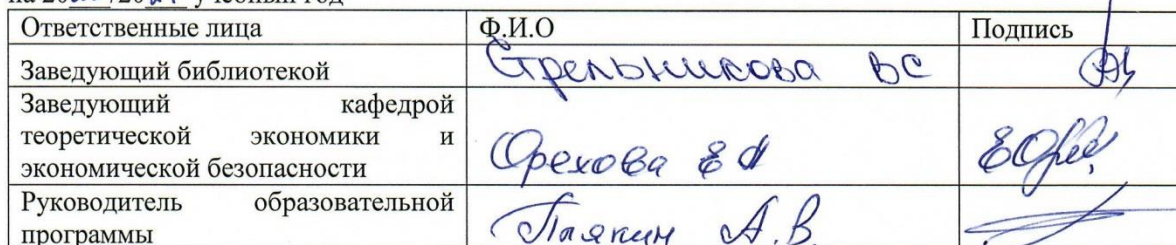 учебный год
Ответственные лица Ф.И.О Подпись
Заведующий библиотекой Стрельникова ВС
Заведующий кафедрой
теоретической экономики и
экономической безопасности Орехова Е А
Руководитель образовательной
программы А.В.